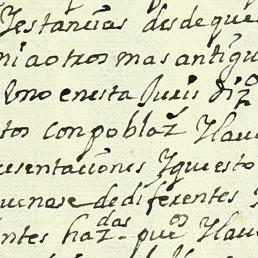 Jestancias desde que
ni a otros mas antigu
Uno en esta Juris dizⁿ
tos con poblazⁿ Y lau
esentaciones Y que esto
uenase de diferentes
ntes hazdas pues Y lau